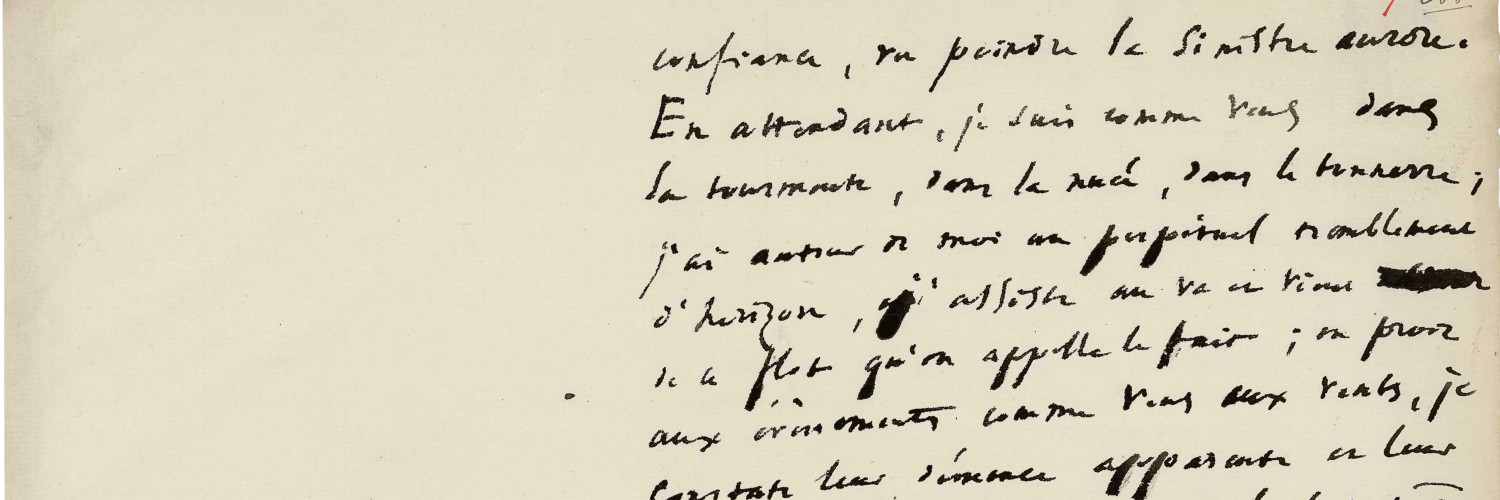 confiance, va poindre la sinistre aurore.
En attendant, je suis comme vous dans
la tourmente, dans la nuée, dans le tonnerre ;
j'ai autour de moi un perpétuel tremblement
d'horizon, j'assiste au va et vient
de ce flot qu'on appelle le fait ; en proie
aux événements comme vous aux vents, je
constate leur démence apparente et leur